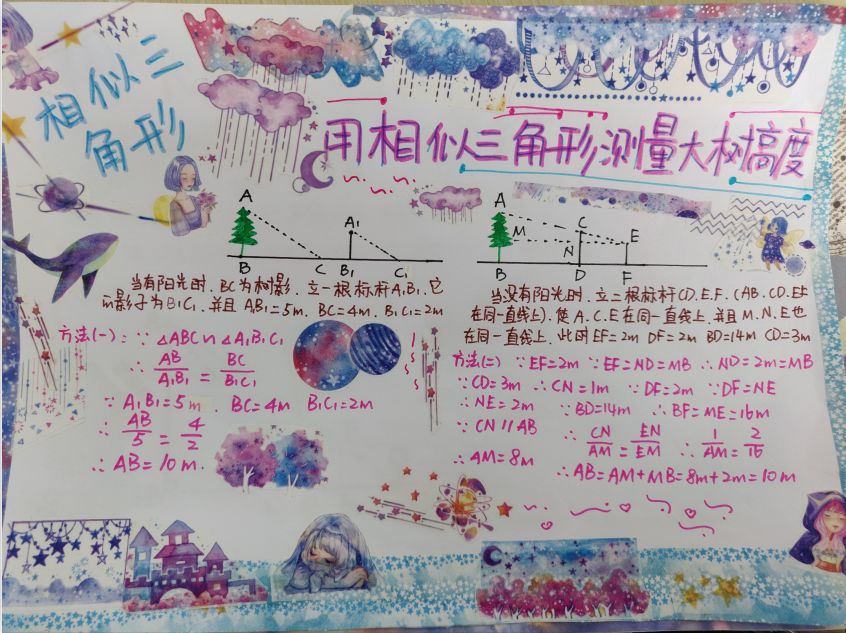 相似三
角形
用相似三角形测量大树高度
A
B
C
A₁
B₁
C₁
当有阳光时，BC为树影，立一根标杆A₁B₁，它
的影子为B₁C₁，并且A₁B₁=5m，BC=4m，B₁C₁=2m
方法(一)：∵ △ABC∽△A₁B₁C₁
∴ AB/A₁B₁ = BC/B₁C₁
∵ A₁B₁=5m，BC=4m B₁C₁=2m
∴ AB/5 = 4/2
∴ AB=10m.
A
M
B
C
N
D
E
F
当没有阳光时，立二根标杆CD、E.F.（AB、CD、EF
在同一直线上），使A、C、E在同一直线上，并且M、N、E也
在同一直线上，此时EF=2m DF=2m BD=14m CD=3m
方法(二) ∵EF=2m ∵EF=ND=MB ∴ND=2m=MB
∵CD=3m ∴CN=1m ∵DF=2m ∵DF=NE
∴NE=2m ∵BD=14m ∴BF=ME=16m
∵CN∥AB ∴ CN/AM = EN/EM ∴ 1/AM = 2/16
∴AM=8m
∴AB=AM+MB=8m+2m=10m